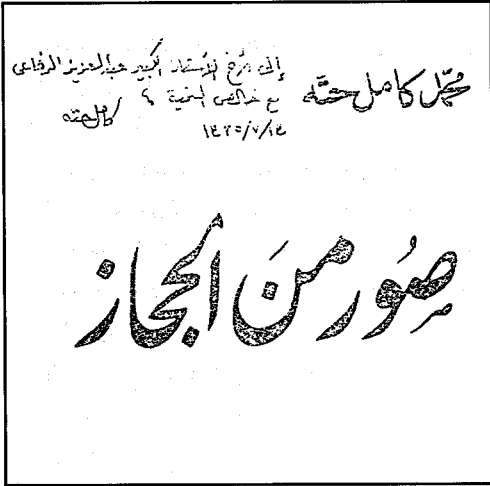 محمد كامل حته
إلى الأخ الأستاذ الكبير عبدالعزيز الرفاعى
مع خالص التحية
كامل حته
صُور منَ الحجاز